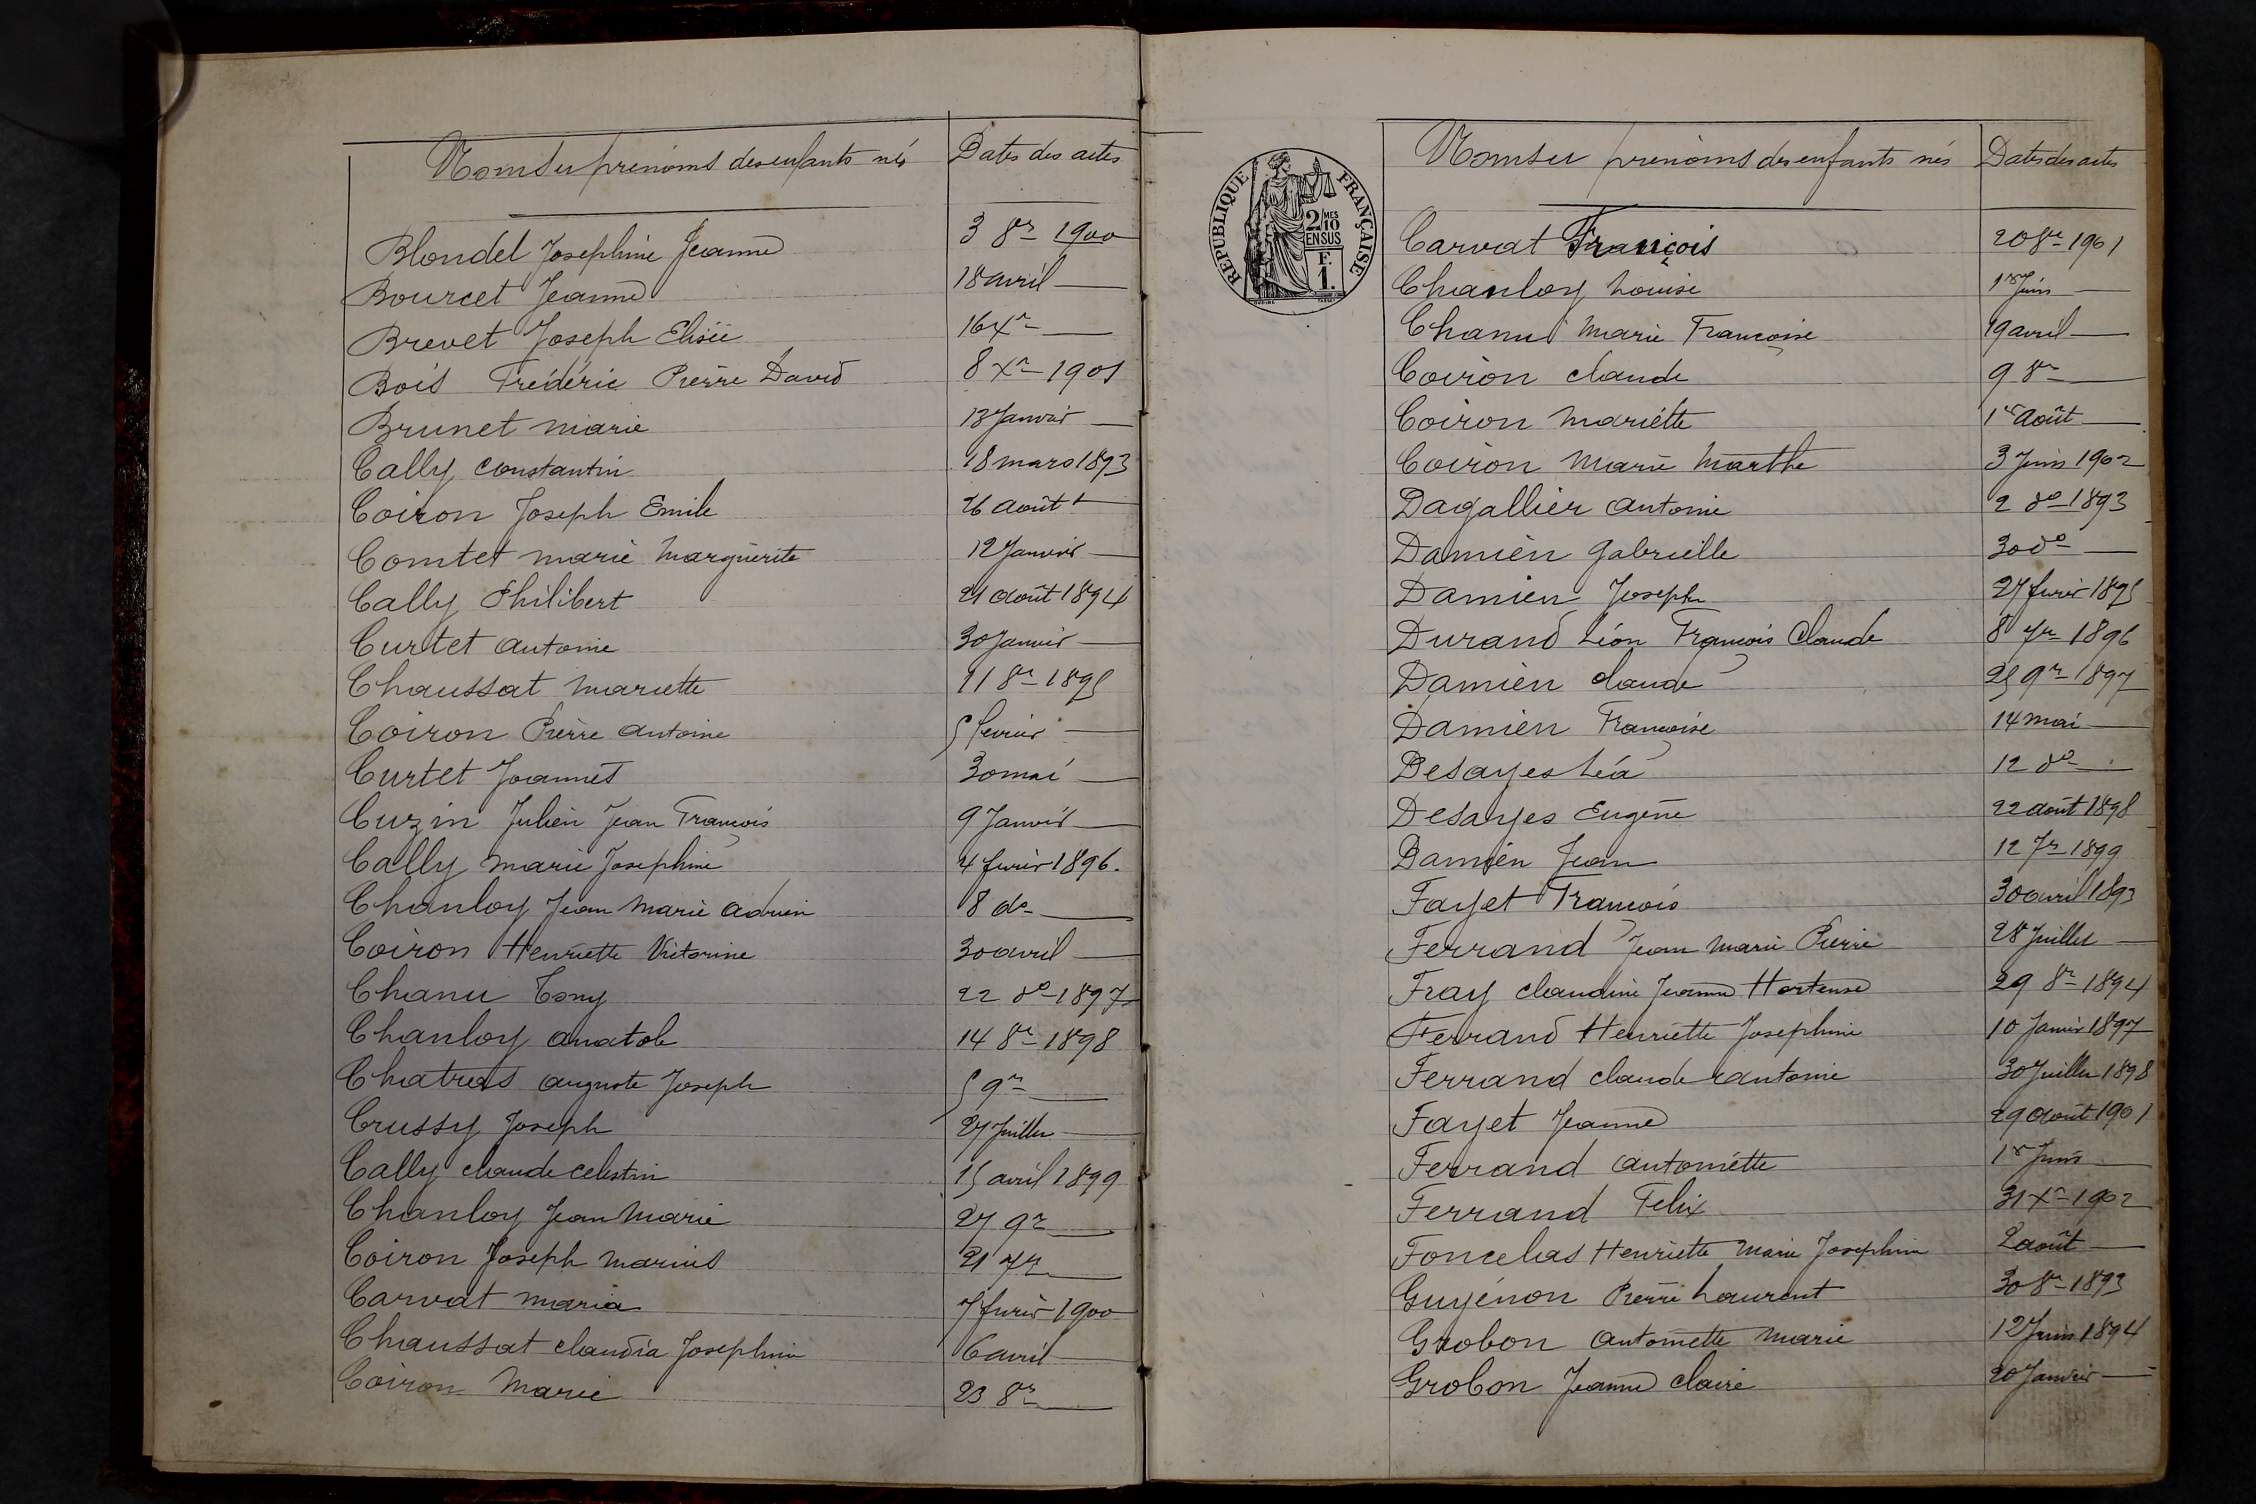 Noms et prénoms des enfants nés Dates des actes
Blondel Josephine Jeanne 3 8re 1900
Bourcet Jeanne 18 avril —
Brevet Joseph Elisée 16 Xre —
Bois Frédéric Pierre David 8 Xre 1901
Brunet Marie 13 Janvier —
Cally Constantin 18 mars 1893
Coiron Joseph Emile 26 août —
Comtet Marie Marguerite 12 Janvier —
Cally Philibert 21 août 1894
Curtet Antoine 30 Janvier —
Chaussat Mariette 11 8re 1895
Coiron Pierre Antoine 5 février —
Curtet Joannès 30 mai —
Cuzin Julien Jean François 9 Janvier —
Cally Marie Josephine 4 février 1896.
Chanloy Jean Marie Adrien 8 do —
Coiron Henriette Victorine 30 avril —
Chanu Tony 22 do 1897
Chanloy Anatole 14 8re 1898
Chatras Auguste Joseph 5 9re —
Crussy Joseph 27 Juillet —
Cally Claude Celestin 15 avril 1899
Chanloy Jean Marie 27 9re —
Coiron Joseph Marius 21 7re —
Carvat Maria 7 février 1900
Chaussat Claudia Josephine 6 avril —
Coiron Marie 23 8re —
RÉPUBLIQUE FRANÇAISE
2 MES 10
EN SUS
F.
1.
Noms et prénoms des enfants nés Dates des actes
Carvat François 20 8re 1901
Chanloy Louise 1er Juin —
Chanu Marie Françoise 19 avril —
Coiron Claude 9 8re —
Coiron Mariette 1er août —
Coiron Marie Marthe 3 Juin 1902
Dagallier Antoine 2 do 1893
Damien Gabrielle 30 do —
Damien Joseph 27 février 1895
Durand Léon François Claude 8 7re 1896
Damien Claude 25 9re 1897
Damien Françoise 14 mai —
Desayes Léa 12 do —
Desayes Eugène 22 août 1898
Damien Jean 12 7re 1899
Fayet François 30 avril 1893
Ferrand Jean Marie Pierre 28 Juillet —
Fray Claudine Jeanne Hortense 29 8re 1894
Ferrand Henriette Josephine 10 Janvier 1897
Ferrand Claude Antoine 30 Juillet 1898
Fayet Jeanne 29 août 1901
Ferrand Antoinette 1er Juin —
Ferrand Felix 31 Xre 1902
Foncelas Henriette Marie Josephine 2 août —
Guyénon Pierre Laurent 30 8re 1893
Grobon Antoinette Marie 12 Juin 1894
Grobon Jeanne Claire 20 Janvier —